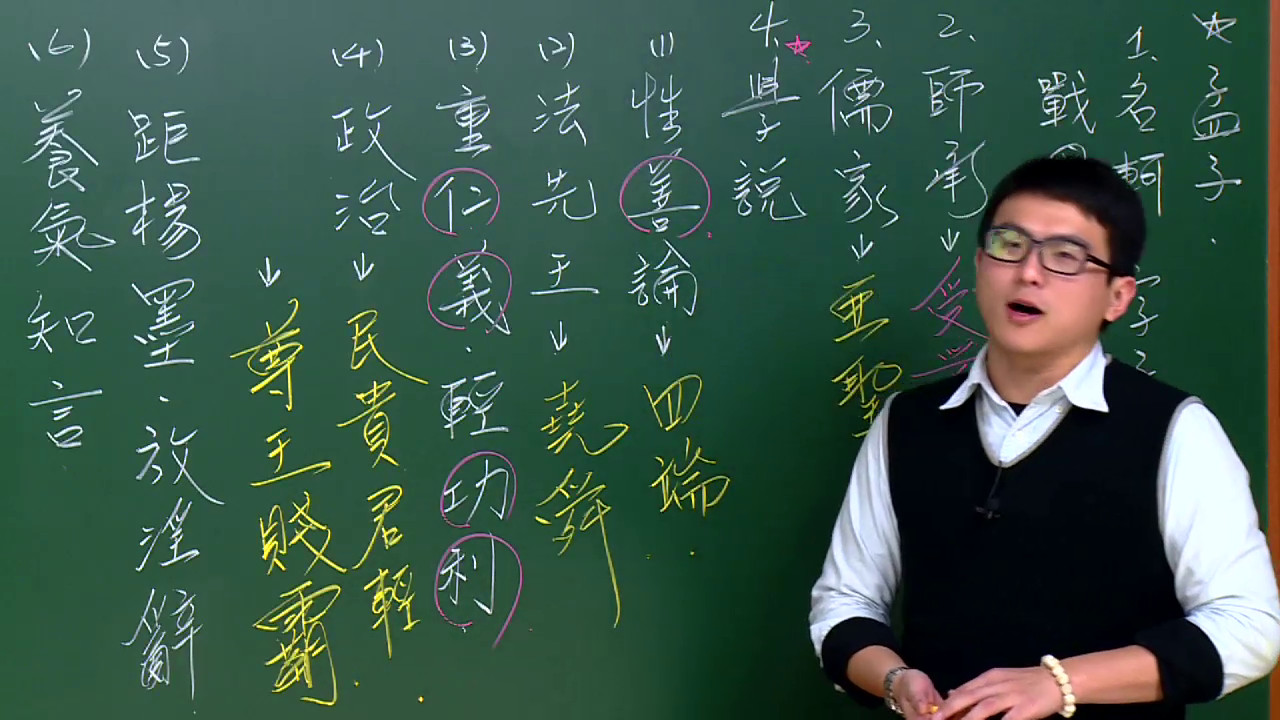 ☆孟子
1、名軻 字子
戰
2、師承→受
3、儒家→亞聖
4、☆學說
(1)性善論→四端
(2)法先王→堯舜
(3)重仁義.輕功利
(4)政治→民貴君輕
→尊王賤霸
(5)距楊墨.放淫辭
(6)養氣知言